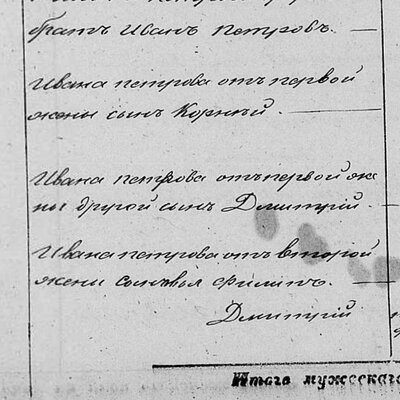 братъ Иванъ Петровъ. —
Ивана петрова отъ первой
жены сынъ Корнѣй. —
Ивана петрова отъ первой же
ны другой сынъ Дмитрій. —
Ивана петрова отъ второй
жены сыновья Филипъ. —
Дмитрій
Итого мужескаго